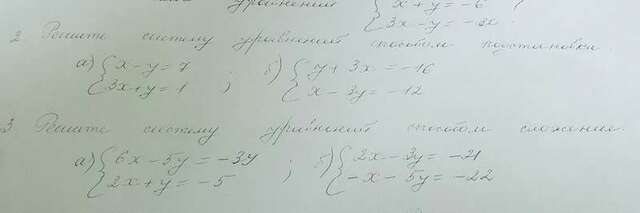 уравнений { x + y = -6 ;
3x - y = -30.
2. Решите систему уравнений способом подстановки.
а) { x - y = 7 ; б) { y + 3x = -16
3x + y = 1 x - 3y = -12
3. Решите систему уравнений способом сложения.
а) { 6x - 5y = -34 ; б) { 2x - 3y = -21
2x + y = -5 -x - 5y = -22